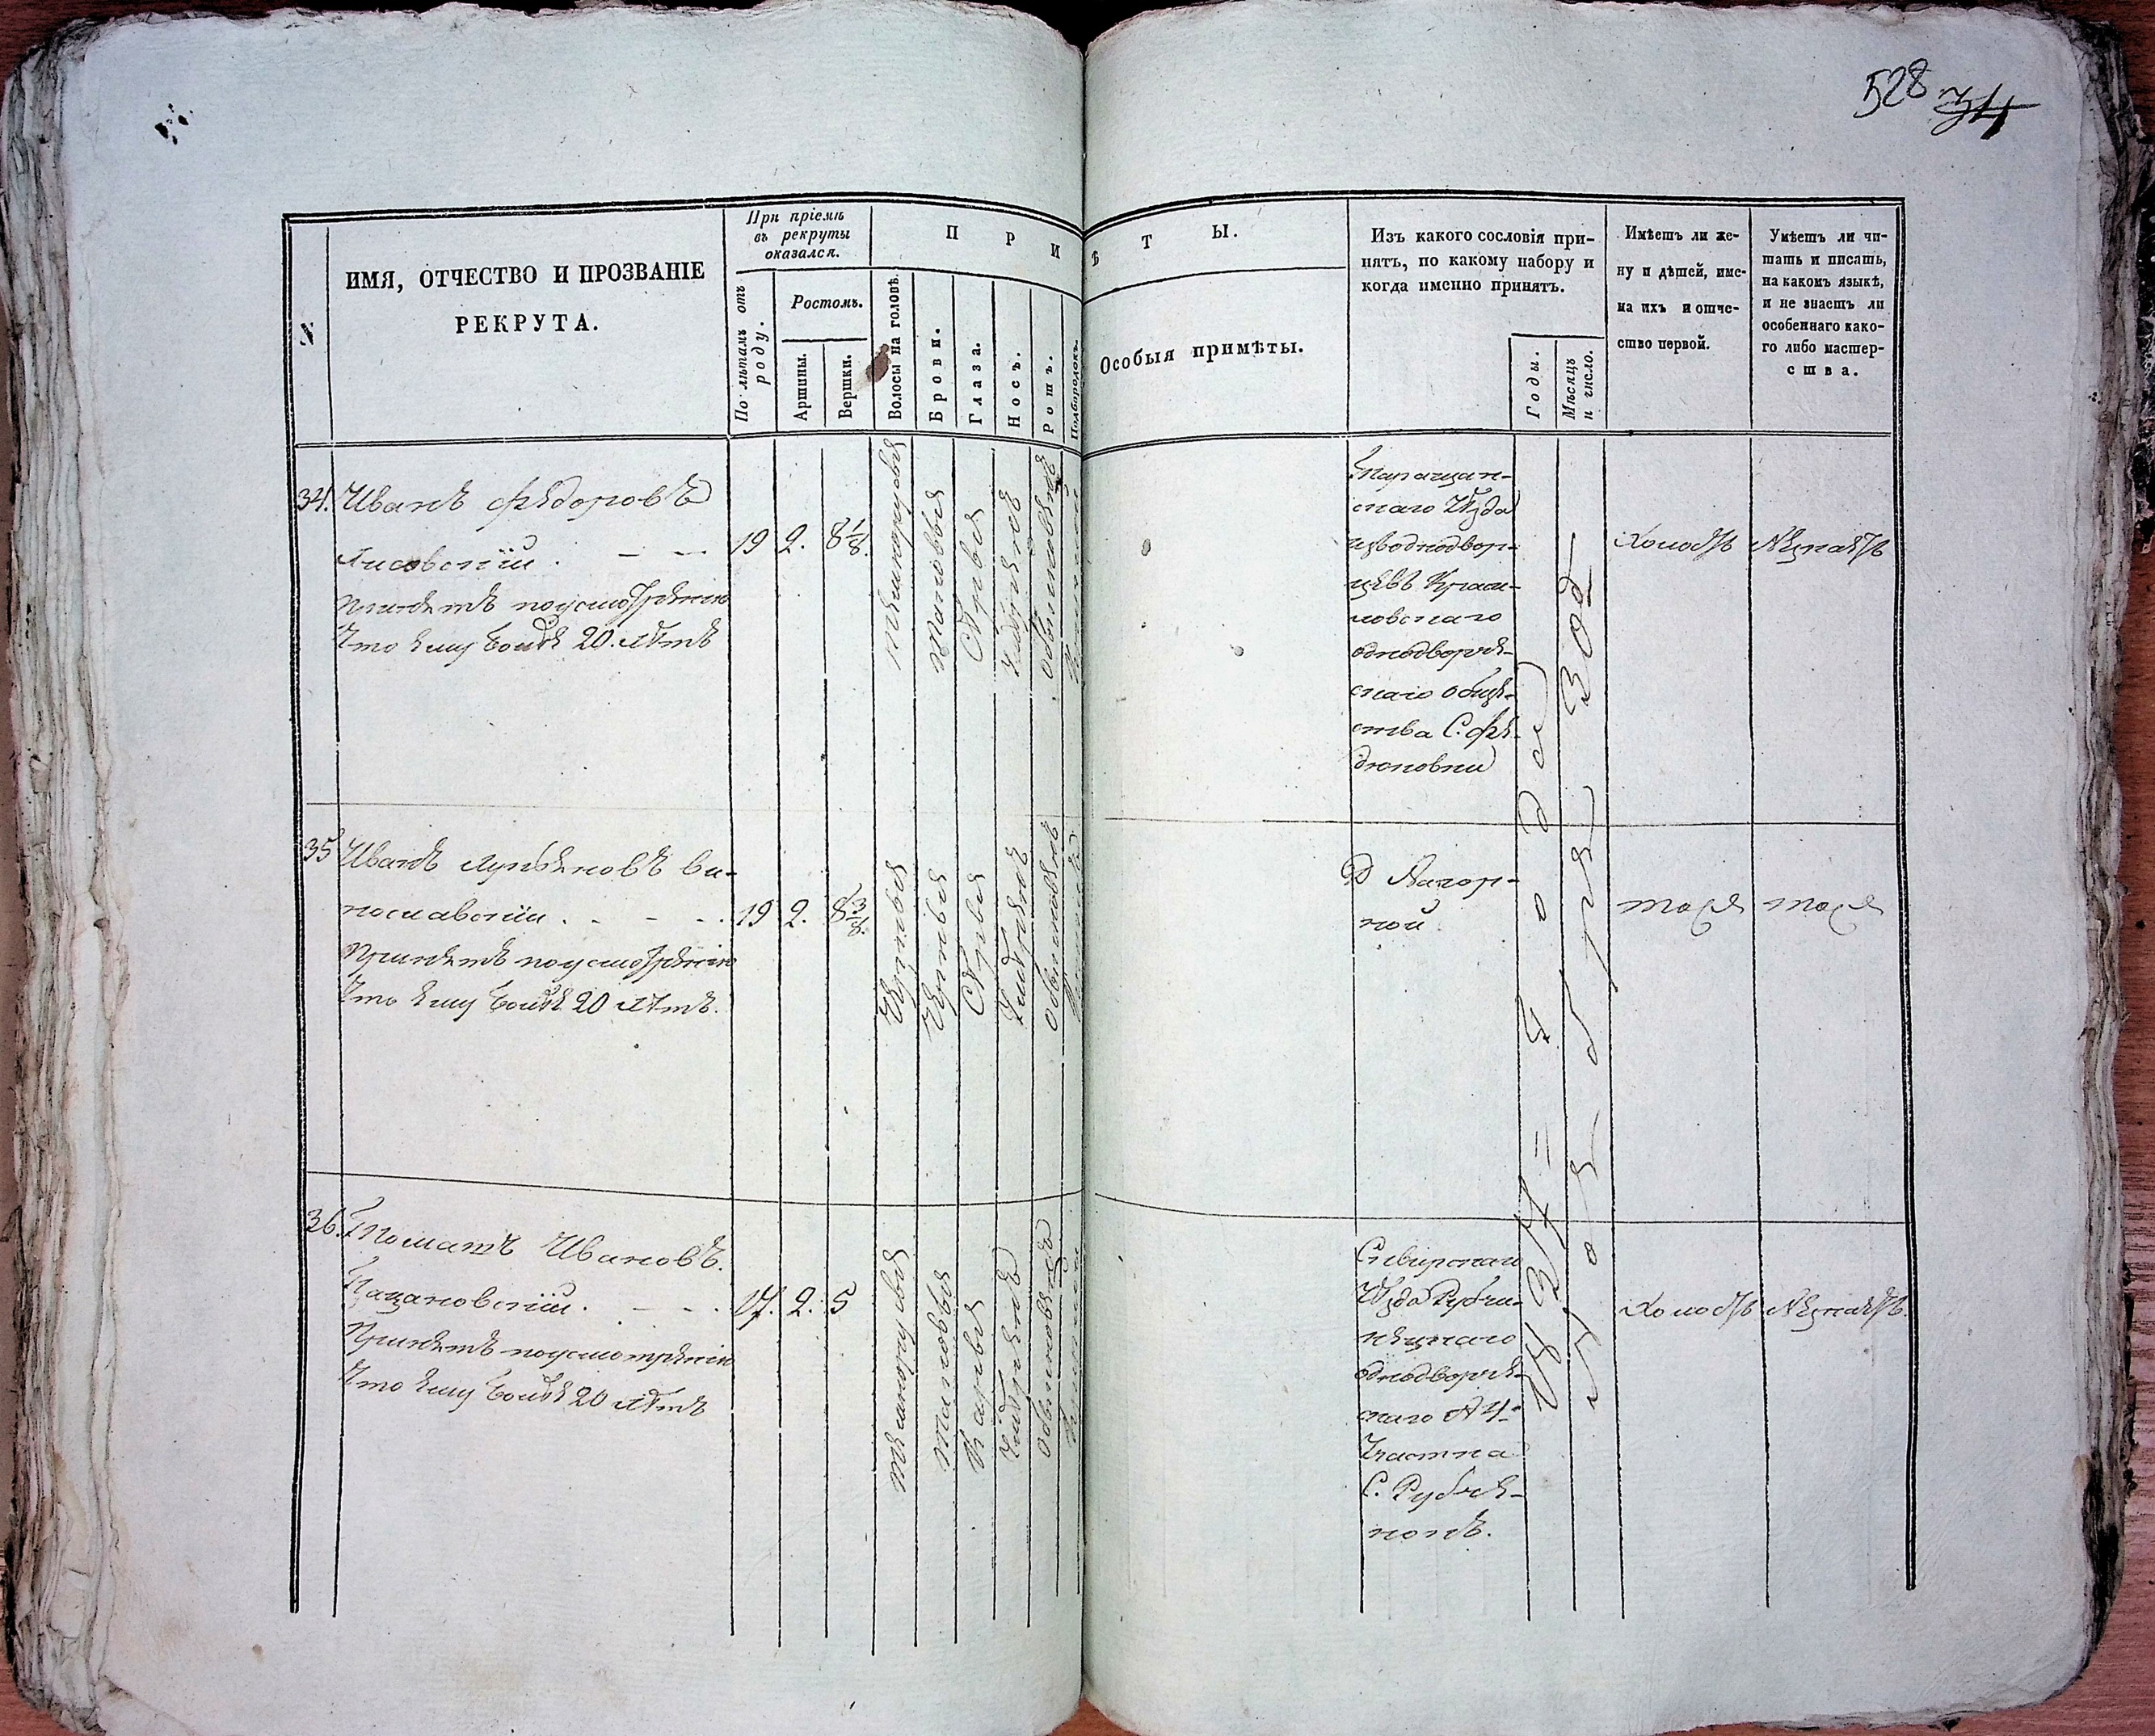 528 34
№
ИМЯ, ОТЧЕСТВО И ПРОЗВАНІЕ
РЕКРУТА.
При пріемѣ
въ рекруты
оказался.
По лѣтамъ отъ
роду.
Ростомъ.
Аршины.
Вершки.
П Р И
Ѣ Т Ы.
Волосы на головѣ.
Брови.
Глаза.
Носъ.
Ротъ.
Подбородокъ.
Особыя примѣты.
Изъ какого сословія при-
нятъ, по какому набору и
когда именно принятъ.
Годы.
Мѣсяцъ
и число.
Имѣетъ ли же-
ну и дѣтей, име-
на ихъ и отче-
ство первой.
Умѣетъ ли чи-
тать и писать,
на какомъ языкѣ,
и не знаетъ ли
особеннаго како-
го либо мастер-
ства.
34. Иванъ Федоровъ
Лисовскій.
Принятъ поусмотренію
что ему болѣе 20. лѣтъ
19 2. 8 1/8.
темнорусыя
таковыя
Серыя
умеренъ
обыкновенъ
Таращан-
скаго Уѣзда
изъ однодвор-
цевъ Краси-
ловскаго
однодворче-
скаго обще-
ства С. Фе-
дюковки
Холостъ
Незнаетъ
35 Иванъ Лукъяновъ Ви-
нославскій.
Принятъ поусмотренію
что ему болѣе 20 лѣтъ.
19 2. 8 3/8.
Черныя
Черныя
Серыя
Умеренъ
обыкновенъ
тоже
тоже
36. Игнатъ Ивановъ.
Принятъ поусмотренію
что ему болѣе 20 лѣтъ
17. 2. 5
темнорусыя
таковыя
Карыя
Умеренъ
обыкновенъ
Сквирскаго
Уѣзда Рубчи-
нецкаго
однодворче-
скаго
Участка
С. Рубчен-
Холостъ
Незнаетъ.
1834 = года
Ноября 30го